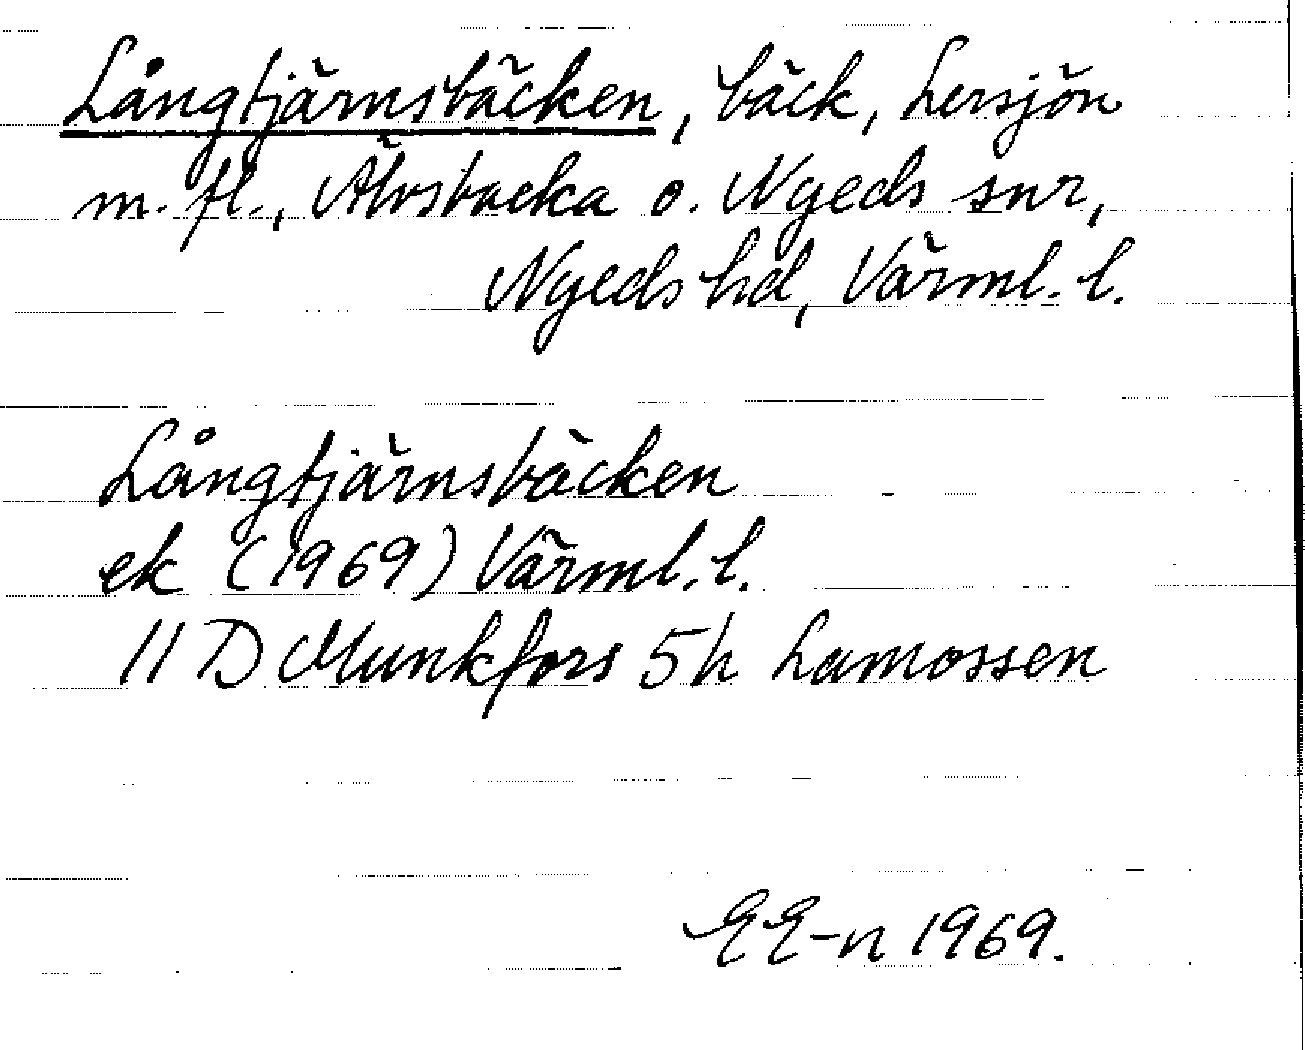 Långtjärnsbäcken, bäck, Lersjön
m. fl., Älvsbacka o. Nyeds snr,
Nyeds hd, Värml. l.
Långtjärnsbäcken
ek (1969) Värml. l.
11 D Munkfors 5h Lamossen
EE-n 1969.